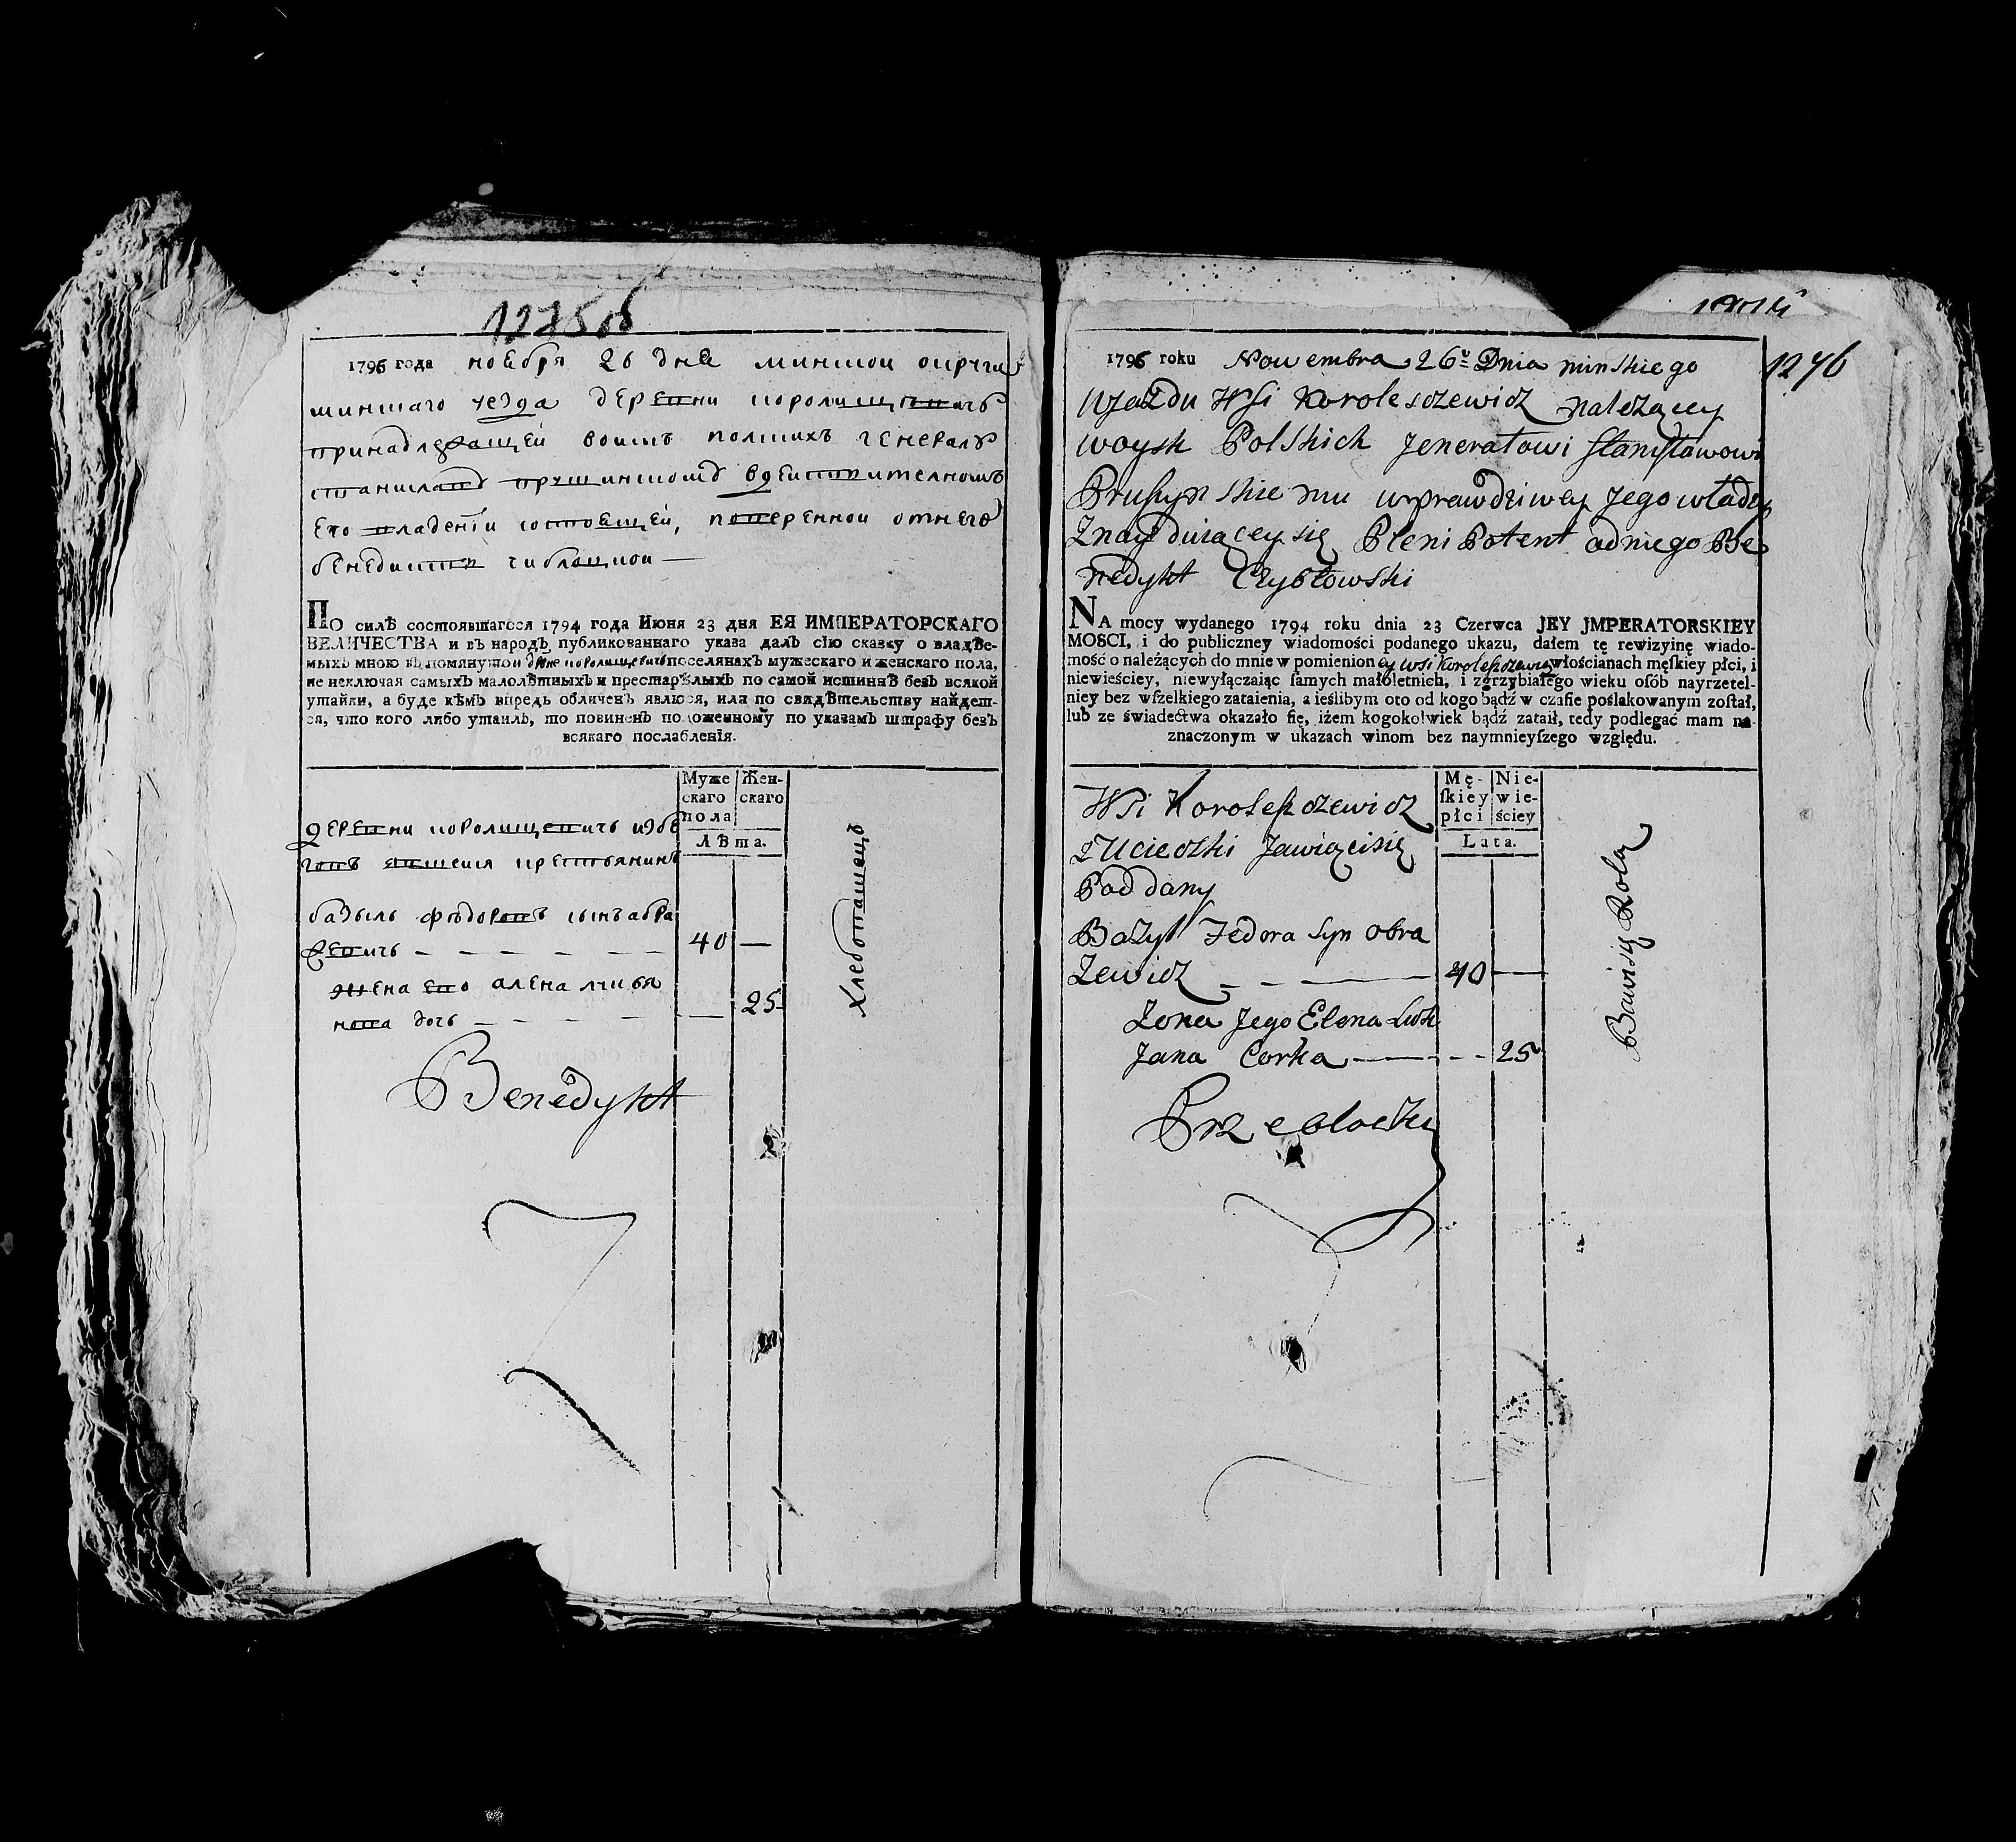 1275 об
1795 года ноебря 26 дне минскои округи
миншаго уезда деревни королищевичъ
принадлежащей воискъ полскихъ генералу
станиславу прушинскому вдеиствителномъ
его владенїи состоещей, поверенной отнего
бенедиктъ чибловскои —
ПО силѣ состоявшагося 1794 года Июня 23 дня ЕЯ ИМПЕРАТОРСКАГО
ВЕЛИЧЕСТВА и въ народъ публикованнаго указа далъ сїю сказку о владѣе-
мыхъ мною въ помянутои дрвне королищевичъ поселянахъ мужескаго и женскаго пола,
не исключая самыхъ малолѣтныхъ и престарѣлыхъ по самой истиннѣ безъ всякой
утайки, а буде кѣмъ впредь обличенъ явлюся, или по свидѣтельству найдет-
ся, что кого либо утаилъ, то повиненъ положенному по указамъ штрафу безъ
всякаго послабленїя.
Муже
скаго
пола
Жен-
скаго
Лѣта.
деревни королищевичъ избе
говъ явшеися крестьянинъ
базыль федоровъ сынъ абра
жевичъ — — — — — — 40 —
жена его алена лукья
нова дочь — — — — — 25
хлебопашецъ
Benedykt
1276
1795 roku Nowembra 26 Dnia minskiego
Ujazdu Wsi Korolesczewicz należącey
woysk Polskich Jenerałowi Stanisławowi
Prusyn skie mu w prawdziwey Jego władzy
Znayduiącey się Pleni Potent od niego Be
nedykt Czybłowski
NA mocy wydanego 1794 roku dnia 23 Czerwca JEY JMPERATORSKIEY
MOSCI, i do publiczney wiadomości podanego ukazu, dałem tę rewizyinę wiado-
mość o należących do mnie w pomienioney wsi Korolesczewicz włościanach męſkiey płci, i
niewieściey, niewyłączaiąc ſamych małoletnich, i zgrzybiałego wieku oſób nayrzetel-
niey bez wſzelkiego zataienia, a ieślibym oto od kogo bądź w czaſie poślakowanym zoſtał,
lub ze świadectwa okazało ſię, iżem kogokolwiek bądź zataił, tedy podlegać mam na-
znaczonym w ukazach winom bez naymnieyſzego względu.
Mę-
ſkiey
płci
Nie-
wie-
ściey
Lata.
Wsi Korolesczewicz
z Ucieczki Jawiącisię
Poddany
Bazyl Fedora syn Obra
Zewicz — — — 40 —
Zona Jego Elena Luk
Jana Corka — — — 25
Bawisię Rolą
Przeblocki